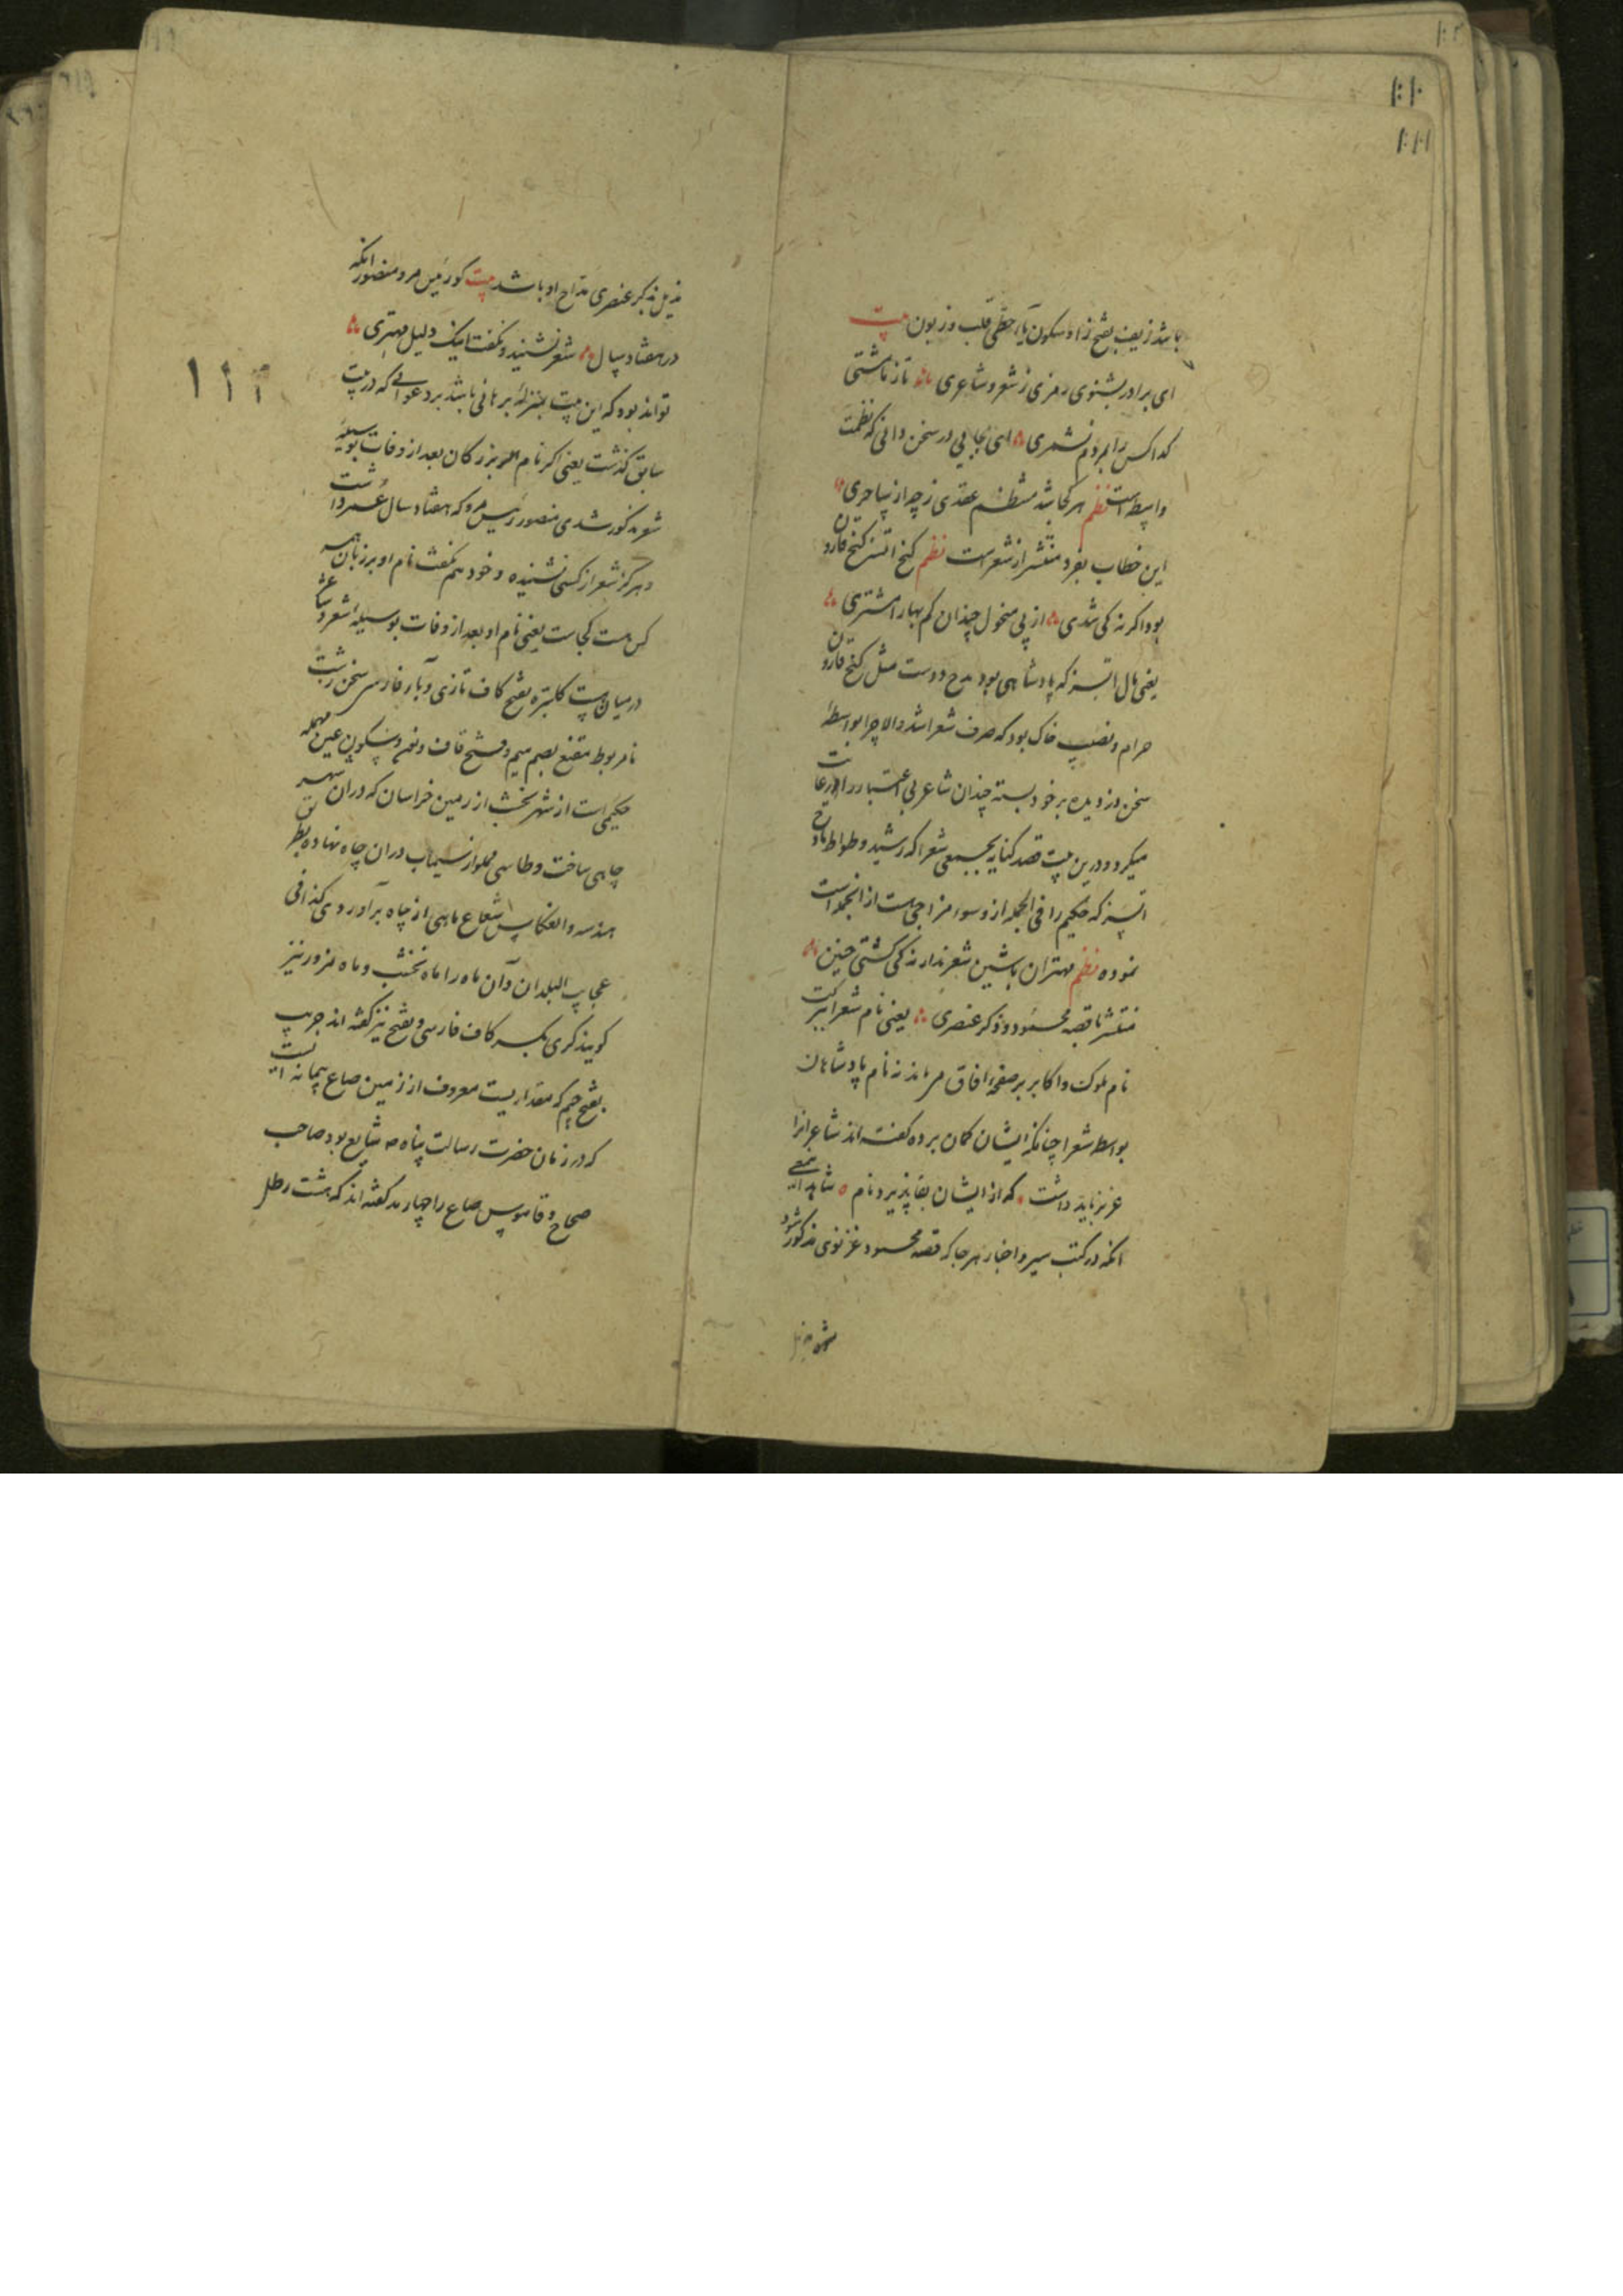 باشد زیف بفتح زا و سکون یاء حطی قلب و زبون بیت
ای برادر بشنوی رمزی ز شعر و شاعری تا ز ما مشتی
کدا کس را بمردم نشمری ای بجایی در سخن دانی که نظمت
واسطه است نظم هر کجا باشد منتظم عقدی ز چه از ساحری
این خطاب بفرد منتشر از شعر است نظم کنج اتسز کنج قارون
بود اکر نه کی شدی از پی منحول چندان کم بها را مشتری
یعنی مال اتسز که پادشاهی بود مدح دوست مثل کنج قارون
حرام و نصیب خاک بود که صرف شعرا شد والا چرا بواسطهٔ
سخن دزدیده بر خود بسته چندان شاعر بی اعتبار را رعایت
میکرد و درین بیت قصد کنایه بجمعی شعرا که رشید وطواط مادح
اتسز که حکیم را فی الجمله از و سوء مزاجی هست از انجمله است
نموده نظم مهتران با شین شعرند ار نه کی کشتی چنین
منتشر با قصه محمود و ذکر عنصری یعنی نام شعرا ببرکت
نام ملوک و اکابر بر صفحه افاق مرماند نه نام پادشاهان
بواسطه شعرا چنانکه ایشان کمان برده کفته اند شاعرانرا
عزیز باید داشت که از ایشان بقا پذیرد نام شاهد این معنی
انکه در کتب سیر و اخبار هر جا که قصه محمود غزنوی مذکور شود
۱۱۲
مذیل بذکر عنصری مداح او باشد بیت کو رئیس مرو منصور انکه
در هفتاد سال شعر نشنید و نکفت اینک دلیل مهتری
تواند بود که این بیت بمنزلهٔ برهانی باشد بر دعوائی که در بیت
سابق کذشت یعنی اکر نام بزرکان بعد از وفات بوسیلهٔ
شعر مذکور شدی منصور رئیس مرو که هفتاد سال عمر داشت
و هرکز شعر از کسی نشنیده و خود هم نکفت نام او بر زبان همه
کس هست کجاست یعنی نام او بعد از وفات بوسیله شعر و شاعر
در میان هست کلپتره بفتح کاف تازی و باء فارسی سخن زشت
نامربوط مقنع بضم میم و فتح قاف و نون و سکون عین مهمله
حکیمی است از شهر نخشب از زمین خراسان که در ان شهر
چاهی ساخت و طاسی مملو از سیماب در ان چاه نهاده بطریق
هندسه و انعکاس شعاع ماهی از چاه برآوردی کذا فی
عجایب البلدان و آن ماه را ماه نخشب و ماه مزور نیز
کویند کری بکسر کاف فارسی و بفتح نیز کفته اند جریب
بفتح جیم که مقداریست معروف از زمین صاع پیمانه ایست
که در زمان حضرت رسالت پناه ص شایع بود صاحب
صحاح و قاموس صاع را چهار مد کفته اند که هشت رطل